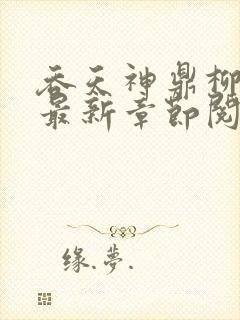 吞天神鼎柳
最新章节阅
缘.梦.